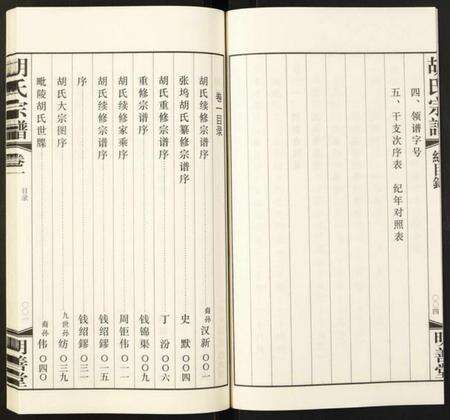 胡氏宗譜
總目錄
四、领谱字号
五、干支次序表 纪年对照表
〇〇四
明善堂
卷一目录
胡氏续修宗谱序 裔孙 汉新 〇〇一
张坞胡氏纂修宗谱序 史默 〇〇四
胡氏重修宗谱序 丁汾 〇〇六
重修宗谱序 钱锦渠 〇〇九
胡氏续修家乘序 周钜伟 〇一一
胡氏续修宗谱序 钱绍鏐 〇一五
序 钱绍鏐 〇三一
胡氏大宗图序 九世孙 纺 〇三九
毗陵胡氏世牒 裔孙 伟 〇四〇
胡氏宗譜
卷一
目录
明善堂